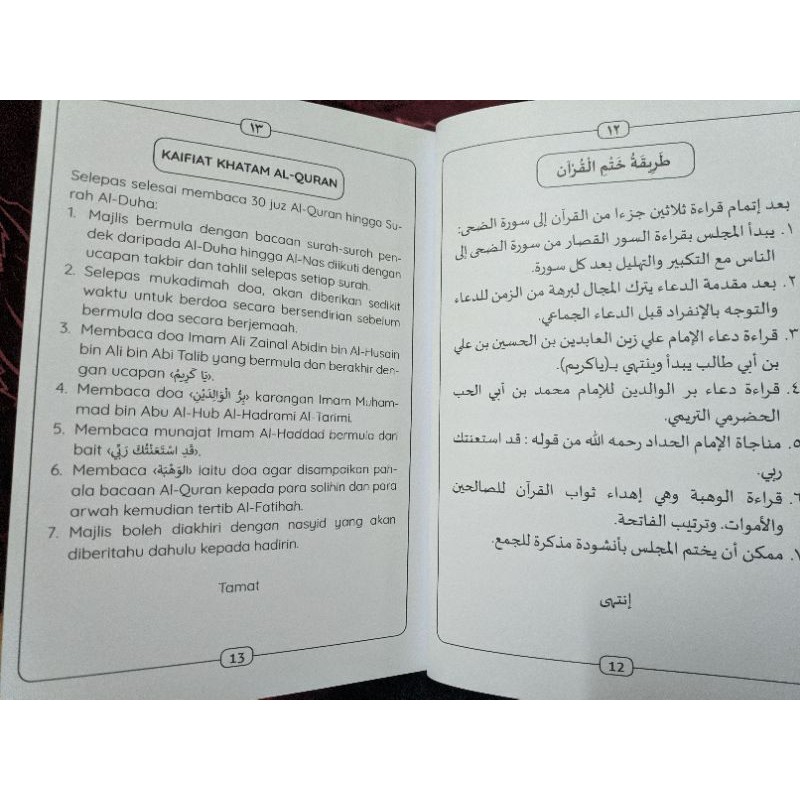 ١٣
KAIFIAT KHATAM AL-QURAN
Selepas selesai membaca 30 juz Al-Quran hingga Su-
rah Al-Duha:
1. Majlis bermula dengan bacaan surah-surah pen-
dek daripada Al-Duha hingga Al-Nas diikuti dengan
ucapan takbir dan tahlil selepas setiap surah.
2. Selepas mukadimah doa, akan diberikan sedikit
waktu untuk berdoa secara bersendirian sebelum
bermula doa secara berjemaah.
3. Membaca doa Imam Ali Zainal Abidin bin Al-Husain
bin Ali bin Abi Talib yang bermula dan berakhir den-
gan ucapan ‹يَا كَرِيمُ›.
4. Membaca doa ‹بِرُّ الْوَالِدَيْنِ› karangan Imam Muham-
mad bin Abu Al-Hub Al-Hadrami Al Tarimi.
5. Membaca munajat Imam Al-Haddad bermula dari
bait ‹قَدِ اسْتَعَنْتُكَ رَبِّي›.
6. Membaca ‹الْوَهْبَة› iaitu doa agar disampaikan pah-
ala bacaan Al-Quran kepada para solihin dan para
arwah kemudian tertib Al-Fatihah.
7. Majlis boleh diakhiri dengan nasyid yang akan
diberitahu dahulu kepada hadirin.
Tamat
13
١٢
طَرِيقَةُ خَتْمِ الْقُرْآن
بعد إتمام قراءة ثلاثين جزءا من القرآن إلى سورة الضحى:
١. يبدأ المجلس بقراءة السور القصار من سورة الضحى إلى
الناس مع التكبير والتهليل بعد كل سورة.
٢. بعد مقدمة الدعاء يترك المجال لبرهة من الزمن للدعاء
والتوجه بالإنفراد قبل الدعاء الجماعي.
٣. قراءة دعاء الإمام علي زين العابدين بن الحسين بن علي
بن أبي طالب يبدأ وينتهي بـ(ياكريم).
٤. قراءة دعاء بر الوالدين للإمام محمد بن أبي الحب
الحضرمي التريمي.
٥. مناجاة الإمام الحداد رحمه الله من قوله : قد استعنتك
ربي.
٦. قراءة الوهبة وهي إهداء ثواب القرآن للصالحين
والأموات. وترتيب الفاتحة.
٧. ممكن أن يختم المجلس بأنشودة مذكرة للجمع.
إنتهى
12